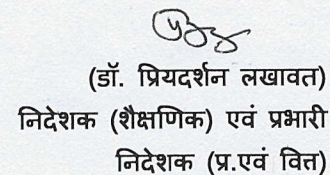 (डॉ. प्रियदर्शन लखावत)
निदेशक (शैक्षणिक) एवं प्रभारी
निदेशक (प्र.एवं वित्त)